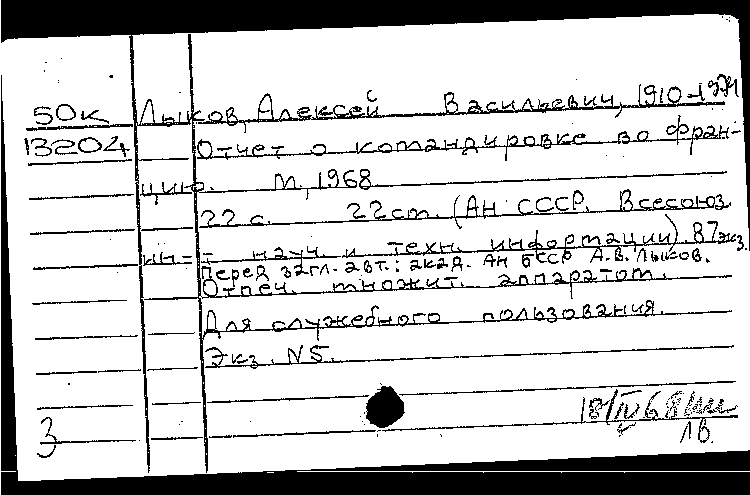 50к Лыков, Алексей Васильевич, 1910-1974
13204 Отчет о командировке во Фран-
цию. М., 1968
22 с. 22 см. (АН СССР. Всесоюз.
ин-т науч. и техн. информации) 87 экз.
Перед загл. авт.: акад. АН БССР А.В. Лыков.
Отпеч. множит. аппаратом.
Для служебного пользования.
Экз. N5.
18/IV 68
3 ЛВ.